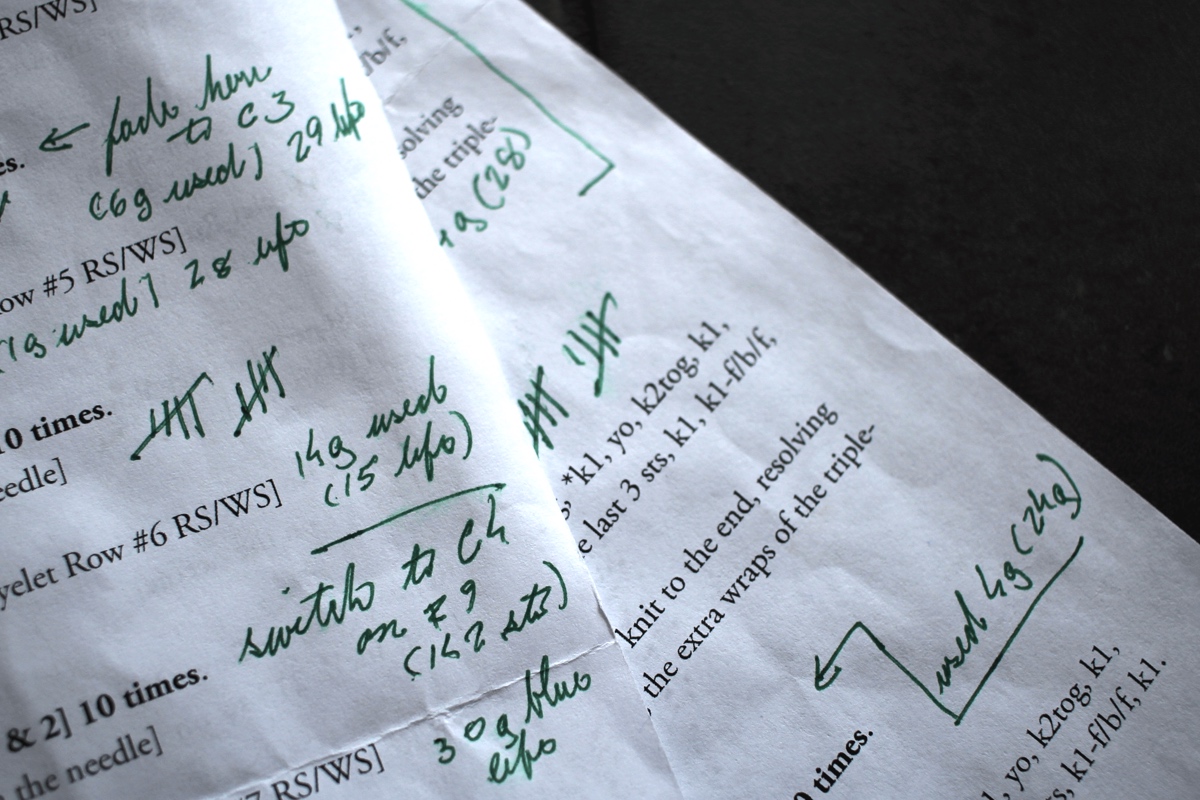 RS/WS]
← fade here
to C3
es.
(6g used] 29 lifo
ow #5 RS/WS]
g used] 28 lifo
10 times.
eedle]
14g used
(15 lifo)
yelet Row #6 RS/WS]
switch to C4
on #9
(142 sts)
& 2] 10 times.
the needle]
30g blue
lifo
7 RS/WS]
/b/f,
solving
the triple-
g (28)
*k1, yo, k2tog, k1,
e last 3 sts, k1, k1-f/b/f,
knit to the end, resolving
the extra wraps of the triple-
used 4g (24g)
0 times.
yo, k2tog, k1,
s, k1-f/b/f, k1.